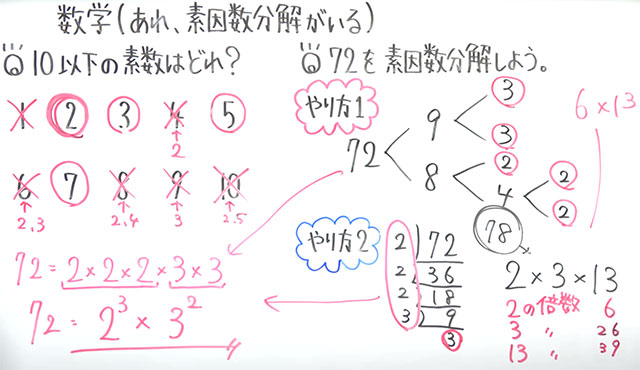 数学(あれ、素因数分解がいる)
Q 10以下の素数はどれ?
1 2 3 4 5
2
6 7 8 9 10
2,3 2,4 3 2,5
72=2×2×2×3×3
72=2³×3²
Q 72を素因数分解しよう。
やり方1
72
9
8
3
3
2
4
2
2
6×13
78
やり方2
2 72
2 36
2 18
3 9
3
2×3×13
2の倍数 6
3 〃 26
13 〃 39